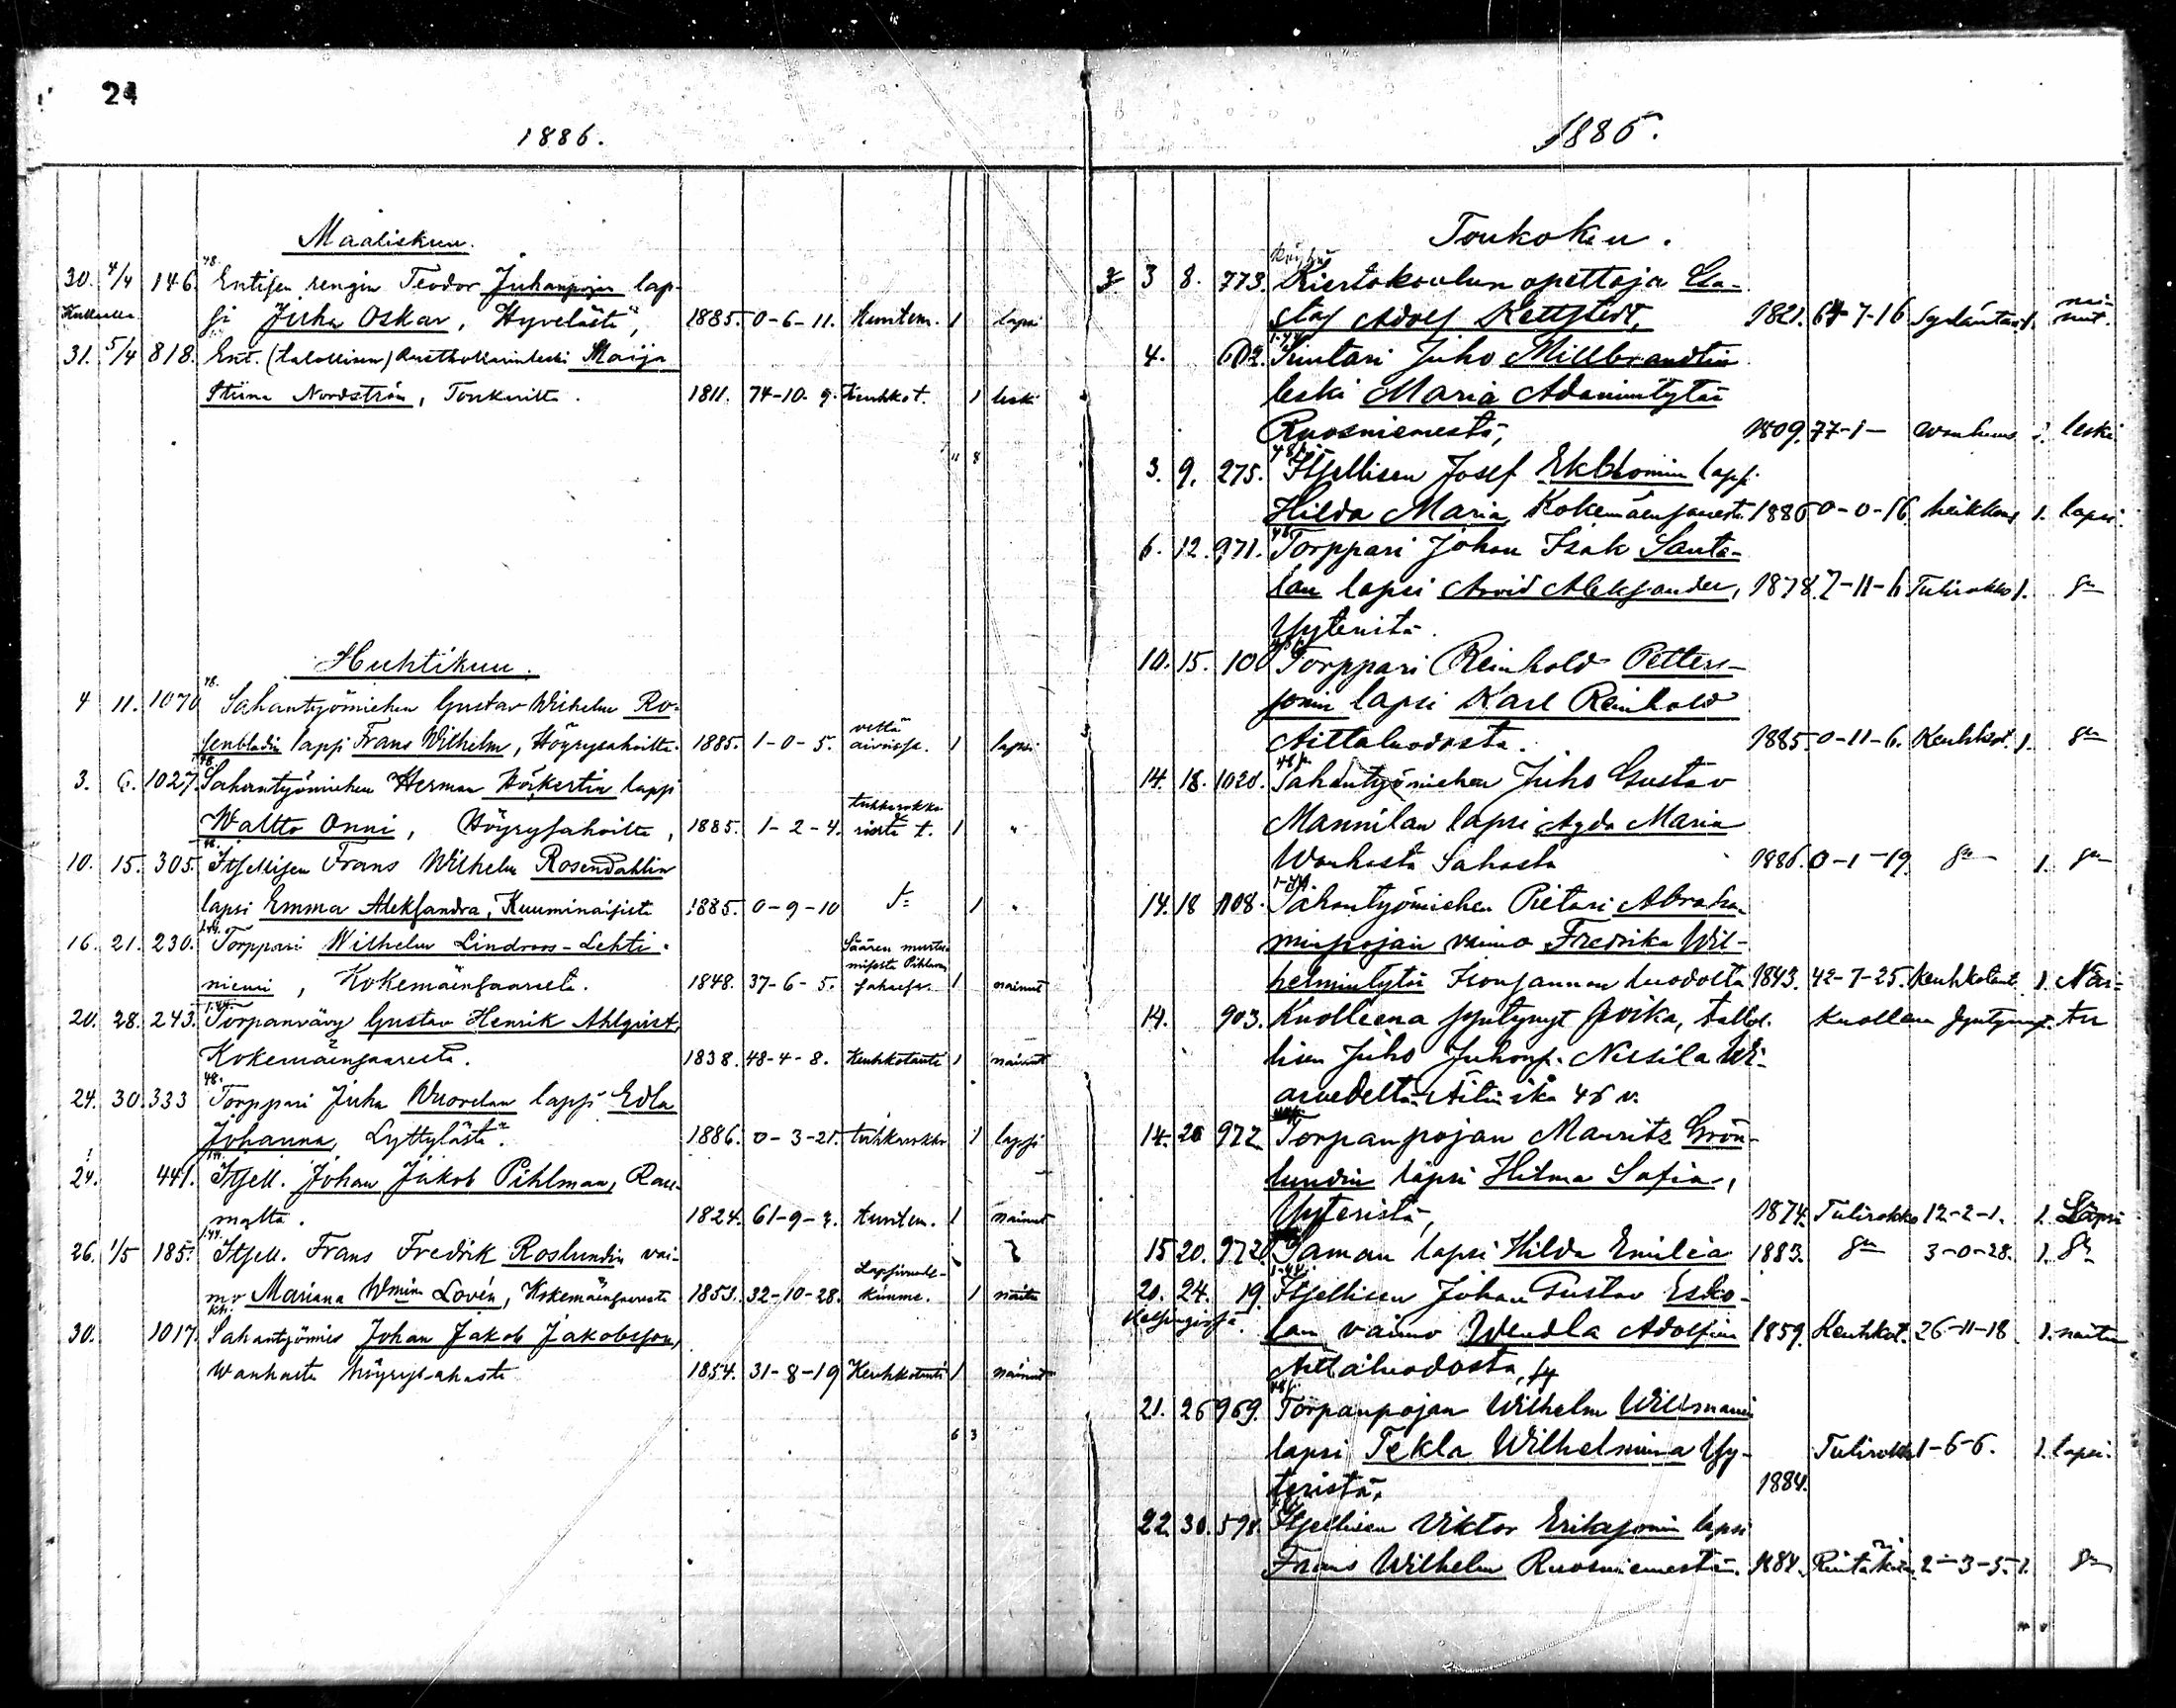 24
1886.
Maaliskuu.
30. 4/4 146. 48. Entisen rengin Teodor Juhanpojan lap-
si Juha Oskar, Hyvelästä, 1885. 0-6-11. tuntem. 1 lapsi
31. 5/4 818. Ent. (talollisen) Rusthollarinleski Maija
Stiina Nordström, Tonkarilta. 1811. 74-10-9. Keuhkot. 1 leski
11 8
Huhtikuu.
4 11. 1070 48. Sahantyömiehen Gustav Wilhelm Ro-
senbladin lapsi Frans Wilhelm, Höyrysahoilta. 1885. 1-0-5. vettä aivoissa. 1 lapsi
3. 6. 1027. 48. Sahantyömiehen Herman Höckertin lapsi
Waltto Onni, Höyrysahoilta, 1885. 1-2-4. tuhkarokko rinta t. 1 "
10. 15. 305. 48. Itsellisen Frans Wilhelm Rosendahlin
lapsi Emma Aleksandra, Kuuminaisista 1885. 0-9-10 1 "
16. 21. 230. 1.44. Torppari Wilhelm Lindroos-Lehti-
niemi, Kokemäensaaresta. 1848. 37-6-5. Säären murtu- misesta Pihlavan sahassa. 1 nainut
20. 28. 243. 1.44. Torpanvävy Gustav Henrik Ahlqvist,
Kokemäensaaresta. 1838. 48-4-8. Keuhkotauti 1 nainut
24. 30. 333 48. Torppari Juha Wuorelan lapsi Edla
Johanna, Lyttylästä. 1886. 0-3-21. tuhkarokko 1 lapsi
24. 441. Itsell. Johan Jakob Pihlman, Rau-
malta. 1824. 61-9-2. tuntem. 1 nainut
26. 1/5 185. 1.44. Itsell. Frans Fredrik Roslundin vai-
mo Mariana Wmin. Lovén, Kokemäensaaresta 1853. 32-10-28. Lapsivuode- kuume. 1 naitu
30. 1017. Sahantyömies Johan Jakob Jakobsson,
Wanhasta höyrysahasta 1854. 31-8-19 Keuhkotauti 1 nainut
6 3
1886.
Toukokuu.
3 8. 773. Kiertokoulun opettaja Gu-
staf Adolf Kettstedt, 1821. 64-7-16 Sydäntau 1. nai- nut.
4. 602. 1.44. Suutari Juho Millbrandtin
leski Maria Adamintytär
Ruosniemestä, 1809. 77-1- Wanhuus 1. leski
3. 9. 275. 48. Itsellisen Josef Ekblomin lapsi
Hilda Maria, Kokemäensaaresta. 1886 0-0-16. heikkous 1. lapsi.
6. 12. 971. 48 Torppari Johan Isak Santa-
lan lapsi Arvid Aleksander, 1878. 7-11-6 Tulirokko 1.
Yyteristä.
10. 15. 10 48. Torppari Reinhold Petters-
sonin lapsi Karl Reinhold
Aittaluodosta. 1885. 0-11-6. Keuhkot. 1.
14. 18. 1020. 48. Sahantyömiehen Juho Gustav
Mannilan lapsi Agda Maria
Wanhasta Sahasta 1886. 0-1-19. 1.
14. 18 1108. 1.44. Sahantyömiehen Pietari Abraha-
minpojan vaimo Fredrika Wil-
helmintytär Isonsannan luodolta 1843. 42-7-25. Keuhkotaut. 1. Nai-
14. 903. Kuolleena syntynyt poika, talol- Kuolleena syntynyt. tu
lisen Juho Juhonp. Nissilä Wi-
asvedeltä. Äitin ikä 46 v.
14. 20 972. Torpanpojan Mauritz Grön-
lundin lapsi Hilma Sofia,
Yyteristä, 1874. Tulirokko 12-2-1. 1. Lapsi
15 20. 972. Saman lapsi Hilda Emilia 1883. 3-0-28. 1.
20. 24. 19. 1.44. Itsellisen Johan Gustav Esko-
Helsingissä. lan vaimo Wendla Adolfina 1859. Keuhkot. 26-11-18 1. naitu
Aittaluodosta,
21. 26 969. 48. Torpanpojan Wilhelm Willmanin
lapsi Tekla Wilhelmina Yy- Tulirokko 1-6-6. 1. lapsi.
teristä, 1884.
22. 30. 578. Itsellisen Viktor Eriksonin lapsi
Frans Wilhelm Ruosniemestä. 1884. 2-3-5. 1.